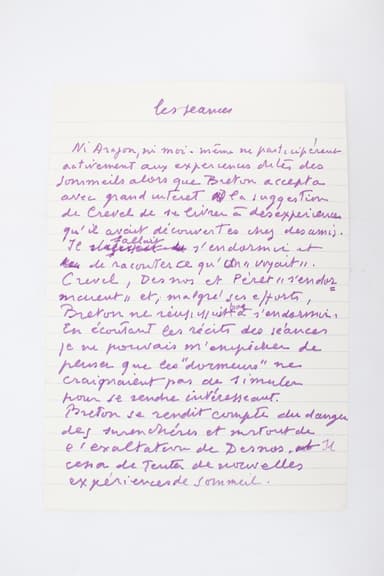 les seances
Ni Aragon, ni moi-même ne participèrent
activement aux experiences dites des
sommeils alors que Breton accepta
avec grand intéret la suggestion
de Crevel de se livrer à des expériences
qu'il avait découvertes chez des amis.
Il fallait s'endormir et
de raconter ce qu'on "voyait".
Crevel, Desnos et Péret "s'endor=
maient" et, malgré ses efforts,
Breton ne réussissait pas s'endormir.
En écoutant les récits des séances
je ne pouvais m'empêcher de
penser que les "dormeurs" ne
craignaient pas de simuler
pour se rendre intéressant.
Breton se rendit compte du danger
des surenchères et surtout de
l'exaltation de Desnos. Il
cessa de tenter de nouvelles
expériences de sommeil.